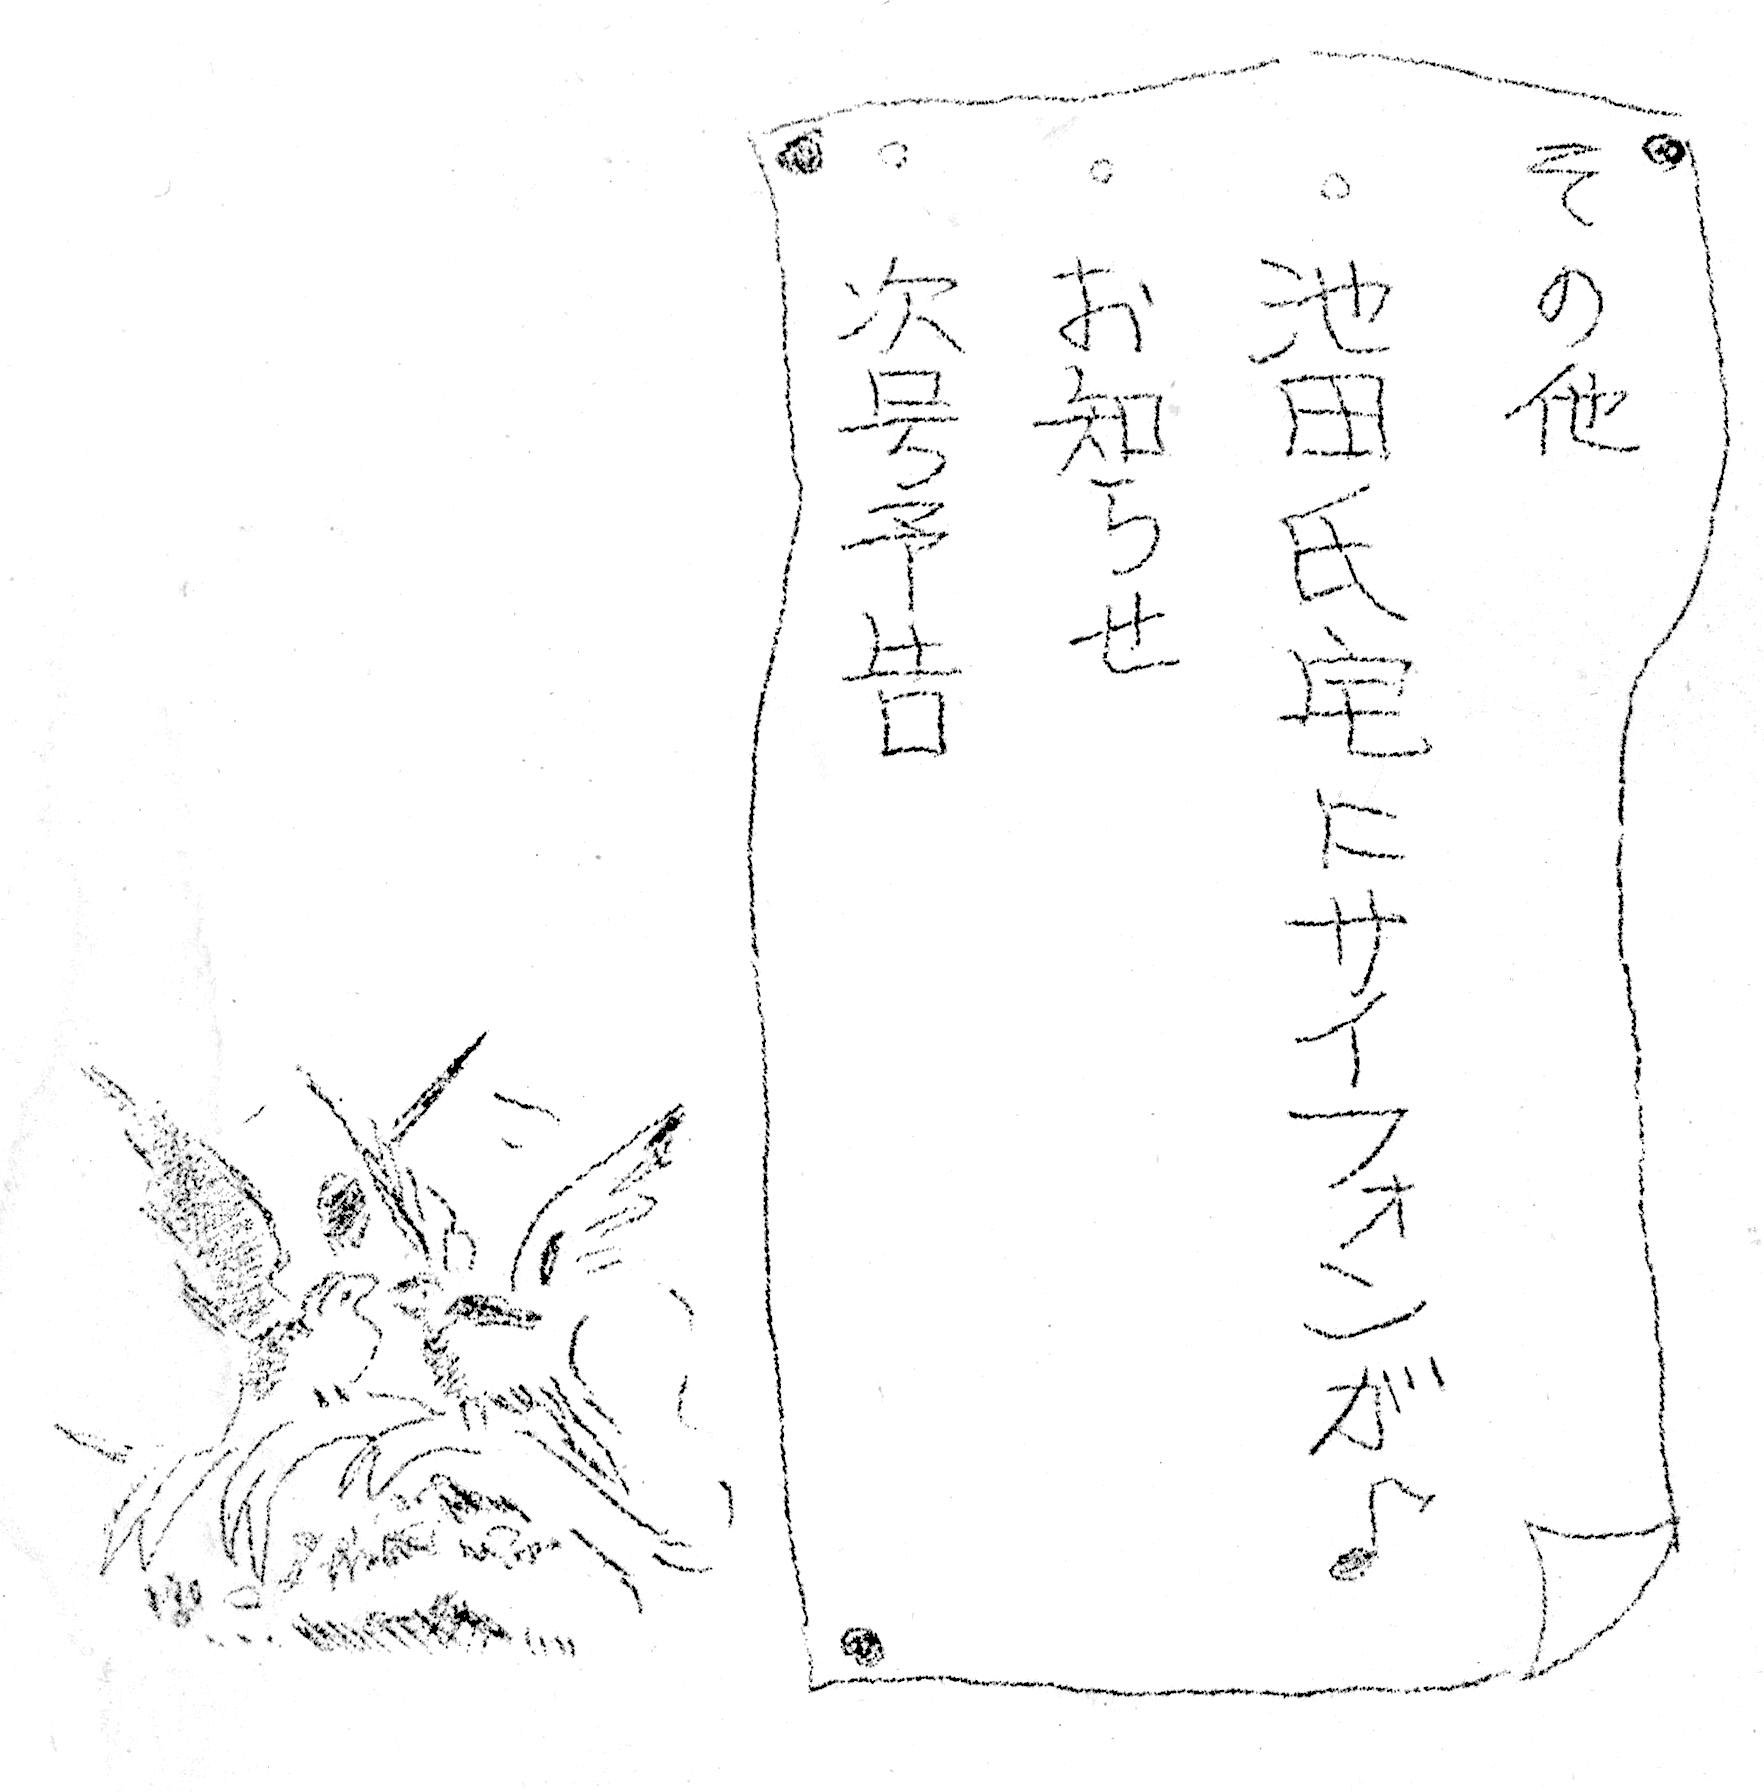 その他
○ 池田氏宅にサイフォンが♪
○ お知らせ
○ 次号予告